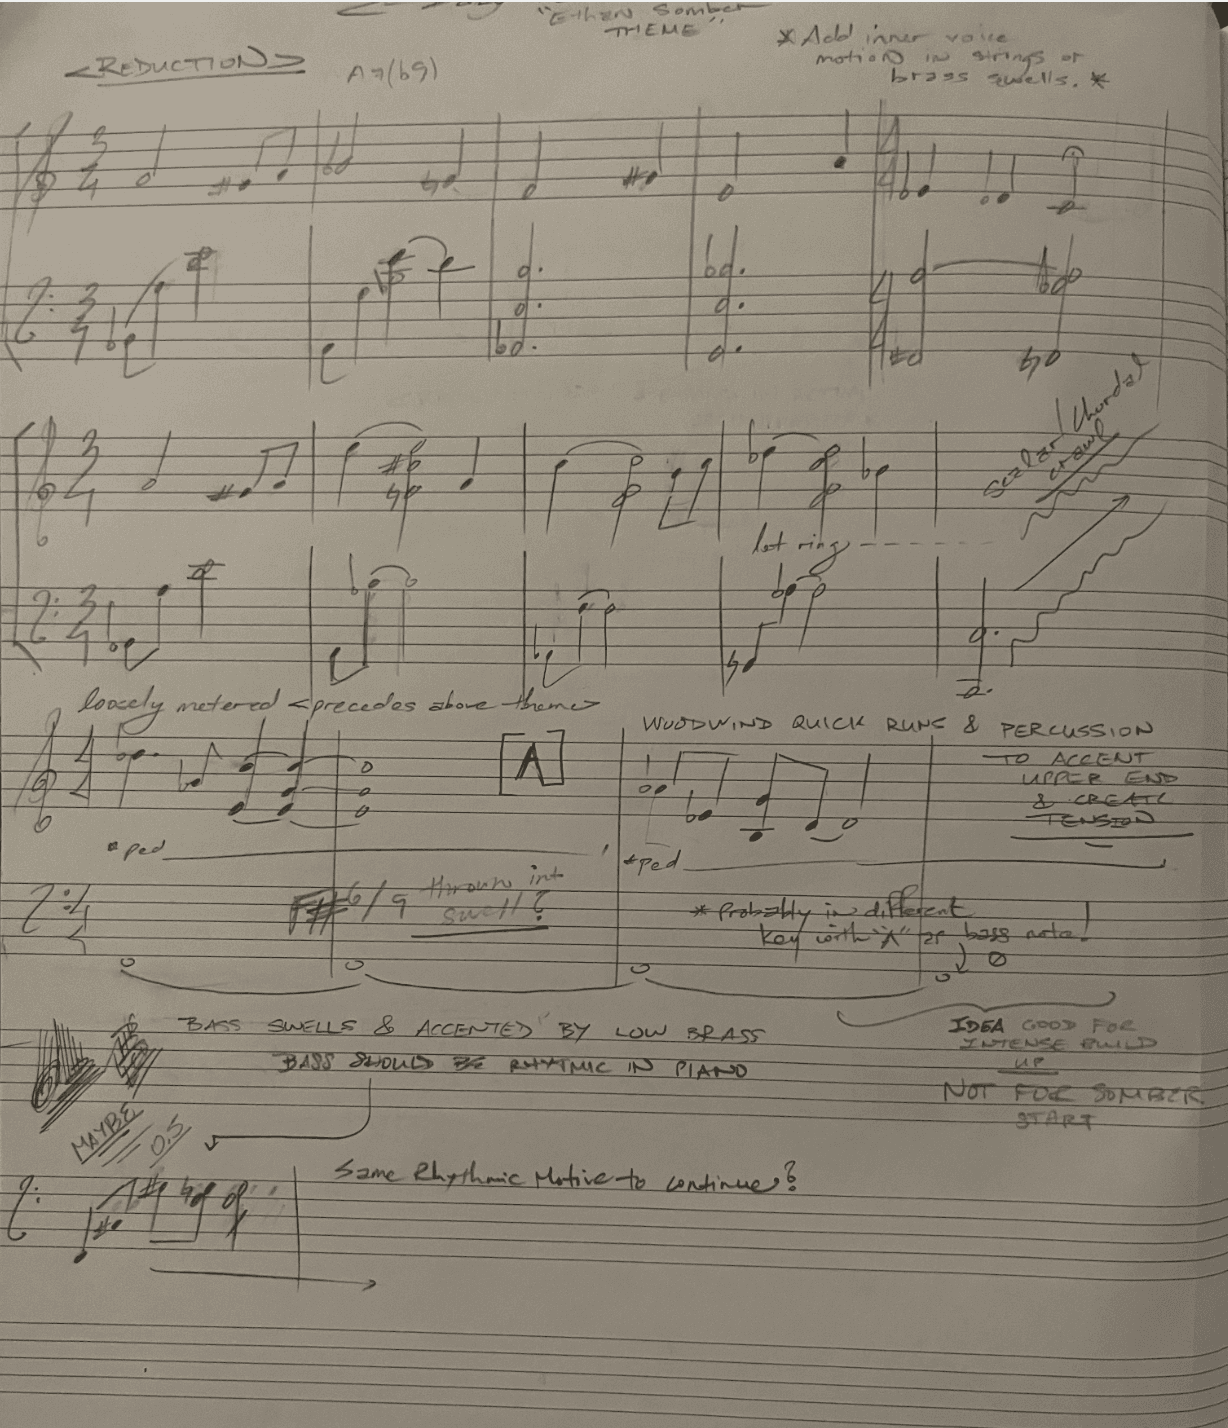 "Ethan Somber
THEME"
<REDUCTION>
A7(b9)
* Add inner voice
motion in strings or
brass swells. *
3
4
3
4
4
4
4
4
3
4
3
4
Scalar / Chordal
crawl
let ring
loosely metered <precedes above theme>
4
4
*ped
A
WOODWIND QUICK RUNS & PERCUSSION
TO ACCENT
UPPER END
& CREATE
TENSION
*ped
F# 6/9 thrown into
swell?
* Probably in different
key with "A" as bass note!
BASS SWELLS & ACCENTED BY LOW BRASS
BASS SHOULD BE RHYTMIC IN PIANO
IDEA GOOD FOR
INTENSE BUILD
UP
NOT FOR SOMBER
START
MAYBE
Same Rhythmic Motive to continue?